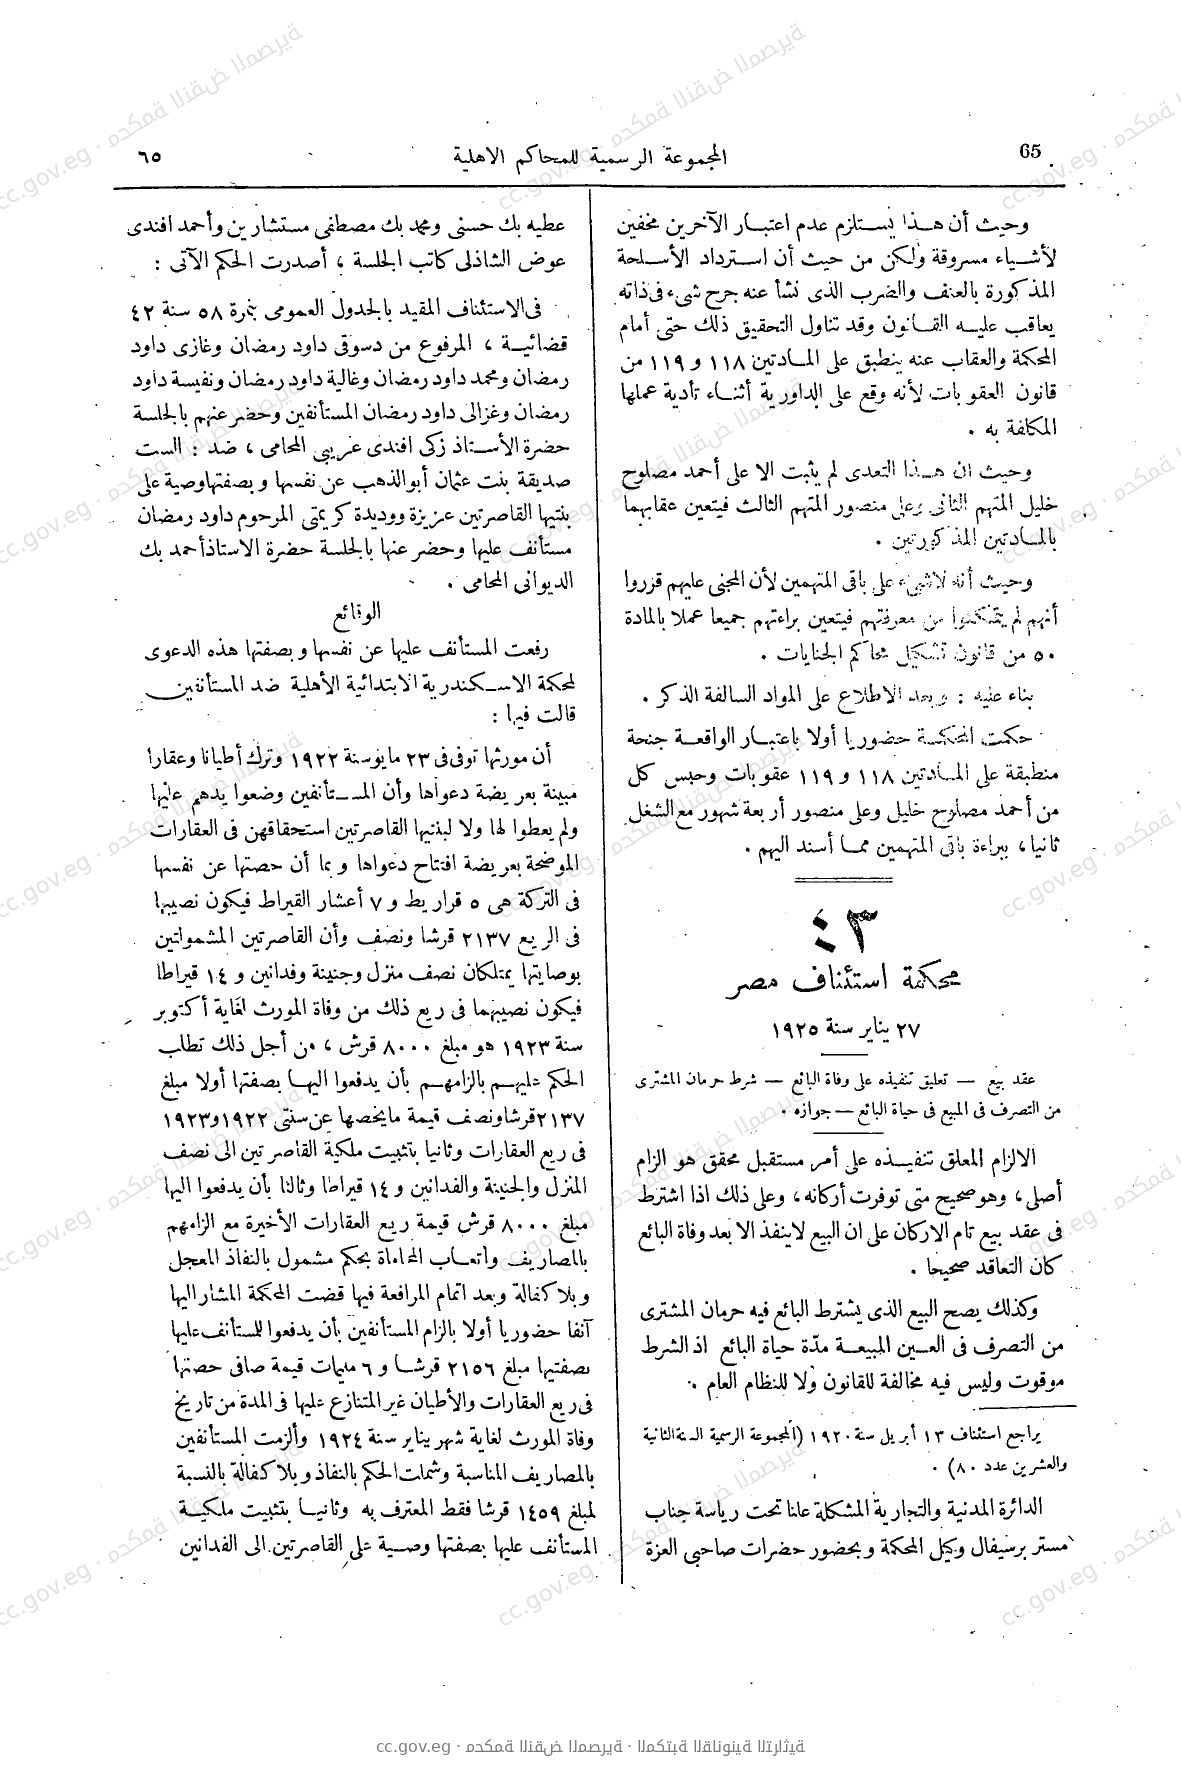 65
المجموعة الرسمية للمحاكم الاهلية
٦٥
وحيث أن هذا يستلزم عدم اعتبار الآخرين مخفين
لأشياء مسروقة ولكن من حيث أن استرداد الأسلحة
المذكورة بالعنف والضرب الذى نشأ عنه جرح شىء فى ذاته
يعاقب عليه القانون وقد تناول التحقيق ذلك حتى أمام
المحكمة والعقاب عنه ينطبق على المادتين ١١٨ و ١١٩ من
قانون العقوبات لأنه وقع على الداورية أثناء تأدية عملها
المكلفة به .
وحيث ان هذا التعدى لم يثبت الا على أحمد مصلوح
خليل المتهم الثانى وعلى منصور المتهم الثالث فيتعين عقابهما
بالمادتين المذكورتين .
وحيث أنه لاشىء على باقى المتهمين لأن المجنى عليهم قرروا
أنهم لم يتمكنوا من معرفتهم فيتعين براءتهم جميعا عملا بالمادة
٥٠ من قانون تشكيل محاكم الجنايات .
بناء عليه : وبعد الاطلاع على المواد السالفة الذكر .
حكمت المحكمة حضوريا أولا باعتبار الواقعة جنحة
منطبقة على المادتين ١١٨ و ١١٩ عقوبات وحبس كل
من أحمد مصلوح خليل وعلى منصور أربعة شهور مع الشغل
ثانيا ، ببراءة باقى المتهمين مما أسند اليهم .
٤٣
محكمة استئناف مصر
٢٧ يناير سنة ١٩٢٥
عقد بيع — تعليق تنفيذه على وفاة البائع — شرط حرمان المشترى
من التصرف فى المبيع فى حياة البائع — جوازه .
الالزام المعلق تنفيذه على أمر مستقبل محقق هو الزام
أصلى ، وهو صحيح متى توفرت أركانه ، وعلى ذلك اذا اشترط
فى عقد بيع تام الاركان على ان البيع لاينفذ الا بعد وفاة البائع
كان التعاقد صحيحا .
وكذلك يصح البيع الذى يشترط البائع فيه حرمان المشترى
من التصرف فى العين المبيعة مدّة حياة البائع اذ الشرط
موقوت وليس فيه مخالفة للقانون ولا للنظام العام .
يراجع استئناف ١٣ أبريل سنة ١٩٢٠ (المجموعة الرسمية السنة الثانية
والعشرين عدد ٨٠) .
الدائرة المدنية والتجارية المشكلة علنا تحت رياسة جناب
مستر برسيفال وكيل المحكمة وبحضور حضرات صاحبى العزة
عطيه بك حسنى ومحمد بك مصطفى مستشارين وأحمد افندى
عوض الشاذلى كاتب الجلسة ، أصدرت الحكم الآتى :
فى الاستئناف المقيد بالجدول العمومى بنمرة ٥٨ سنة ٤٢
قضائية ، المرفوع من دسوقى داود رمضان وغازى داود
رمضان ومحمد داود رمضان وغالية داود رمضان ونفيسة داود
رمضان وغزالى داود رمضان المستأنفين وحضر عنهم بالجلسة
حضرة الأستاذ زكى افندى عريبى المحامى ، ضد : الست
صديقة بنت عثمان أبوالذهب عن نفسها وبصفتها وصية على
بنتيها القاصرتين عزيزة ووديدة كريمتى المرحوم داود رمضان
مستأنف عليها وحضر عنها بالجلسة حضرة الاستاذ أحمد بك
الديوانى المحامى .
الوقائع
رفعت المستأنف عليها عن نفسها وبصفتها هذه الدعوى
لمحكمة الاسكندرية الابتدائية الأهلية ضد المستأنفين
قالت فيها :
أن مورثها توفى فى ٢٣ مايو سنة ١٩٢٢ وترك أطيانا وعقارا
مبينة بعريضة دعواها وأن المستأنفين وضعوا يدهم عليها
ولم يعطوا لها ولا لبنتيها القاصرتين استحقاقهن فى العقارات
الموضحة بعريضة افتتاح دعواها وبما أن حصتها عن نفسها
فى التركة هى ٥ قراريط و ٧ أعشار القيراط فيكون نصيبها
فى الريع ٢١٣٧ قرشا ونصف وأن القاصرتين المشمولتين
بوصايتها يمتلكان نصف منزل وجنينة وفدانين و ١٤ قيراطا
فيكون نصيبهما فى ريع ذلك من وفاة المورث لغاية أكتوبر
سنة ١٩٢٣ هو مبلغ ٨٠٠٠ قرش ، من أجل ذلك تطلب
الحكم عليهم بالزامهم بأن يدفعوا اليها بصفتها أولا مبلغ
٢١٣٧ قرشا ونصف قيمة مايخصها عن سنتى ١٩٢٢ و١٩٢٣
فى ريع العقارات وثانيا بتثبيت ملكية القاصرتين الى نصف
المنزل والجنينة والفدانين و ١٤ قيراطا وثالثا بأن يدفعوا اليها
مبلغ ٨٠٠٠ قرش قيمة ريع العقارات الأخيرة مع الزامهم
بالمصاريف وأتعاب المحاماة بحكم مشمول بالنفاذ المعجل
وبلا كفالة وبعد اتمام المرافعة فيها قضت المحكمة المشار اليها
آنفا حضوريا أولا بالزام المستأنفين بأن يدفعوا للمستأنف عليها
بصفتيها مبلغ ٢١٥٦ قرشا و ٦ مليمات قيمة صافى حصتها
فى ريع العقارات والأطيان غير المتنازع عليها فى المدة من تاريخ
وفاة المورث لغاية شهر يناير سنة ١٩٢٤ وألزمت المستأنفين
بالمصاريف المناسبة وشملت الحكم بالنفاذ وبلا كفالة بالنسبة
لمبلغ ١٤٥٩ قرشا فقط المعترف به وثانيا بتثبيت ملكية
المستأنف عليها بصفتها وصية على القاصرتين الى الفدانين
cc.gov.eg · محكمة النقض المصرية · المكتبة القانونية التراثية